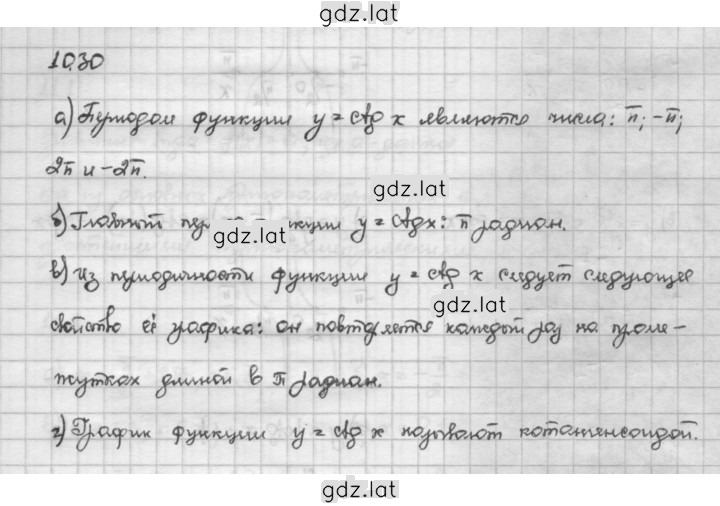 gdz.lat
10.30
а) Периодом функции y = ctg x являются числа: π; -π;
2π и -2π.
gdz.lat
б) Главный пер y = ctgx: π радиан.
gdz.lat
в) Из периодичности функции y = ctg x следует следующее
gdz.lat
свойство её графика: он повторяется каждый раз на проме-
жутках длиной в π радиан.
г) График функции y = ctg x называют котангенсоидой.
gdz.lat